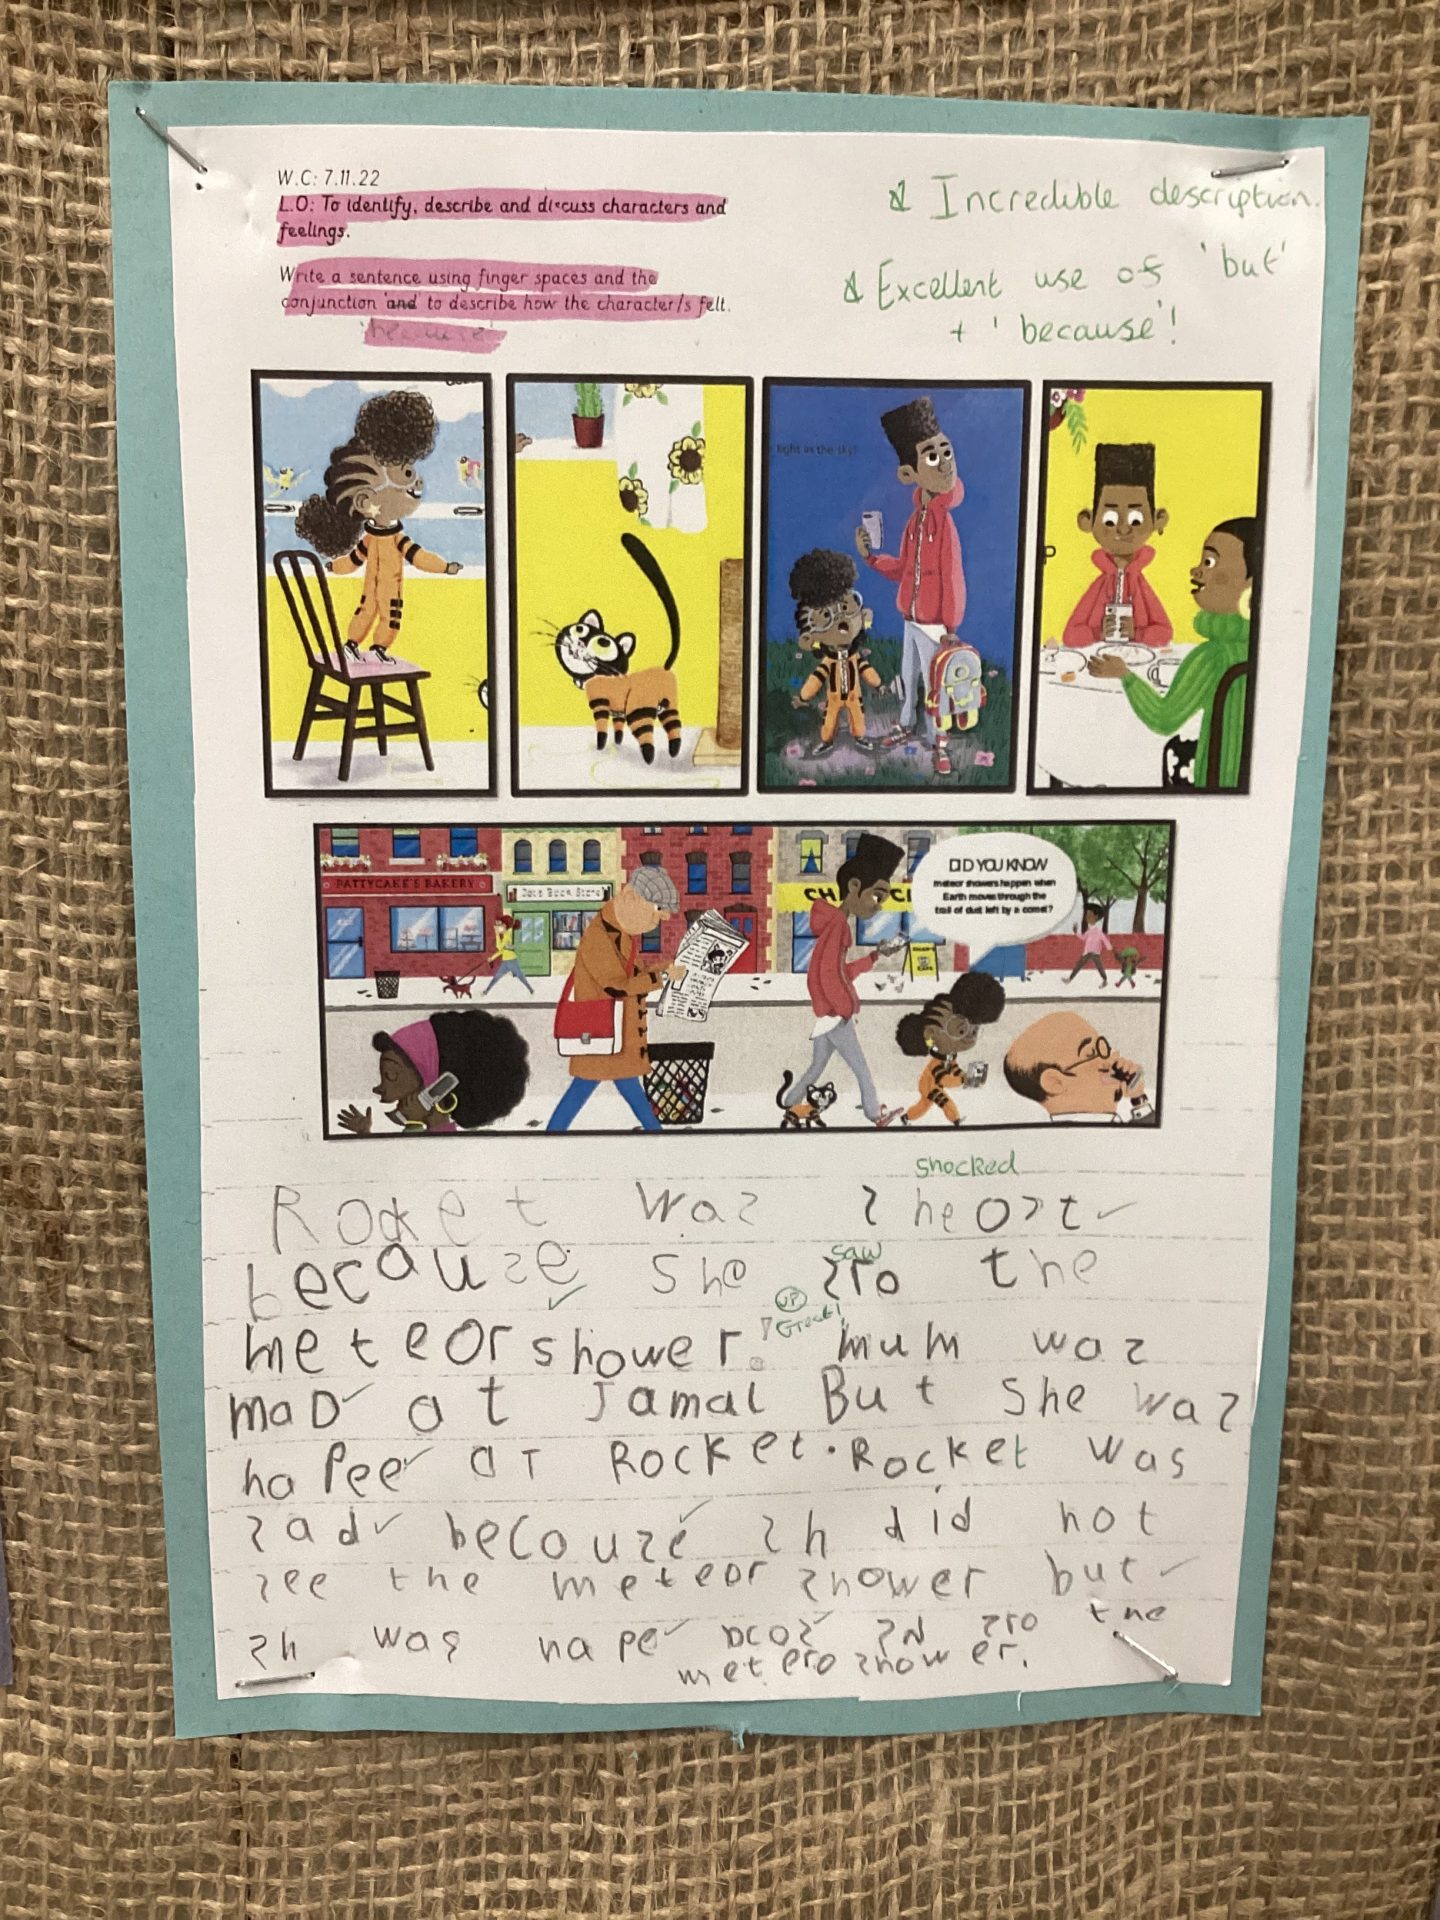 W.C: 7.11.22
L.O: To identify, describe and discuss characters and
feelings.
Write a sentence using finger spaces and the
conjunction 'and' to describe how the character/s felt.
'because'
Incredible description.
Excellent use of 'but'
+ 'because'!
light in the sky?
PATTYCAKE'S BAKERY
DID YOU KNOW
meteor showers happen when
Earth moves through the
trail of dust left by a comet?
shocked
Rocket was sheort
saw
because she sro the
VP
Great!
meteor shower. mum was
maD at Jamal But She was
haPee aT Rocket. Rocket was
sad becouse sh did not
see the meteor shower but
sh was hape bcos sh sro the
metero shower.